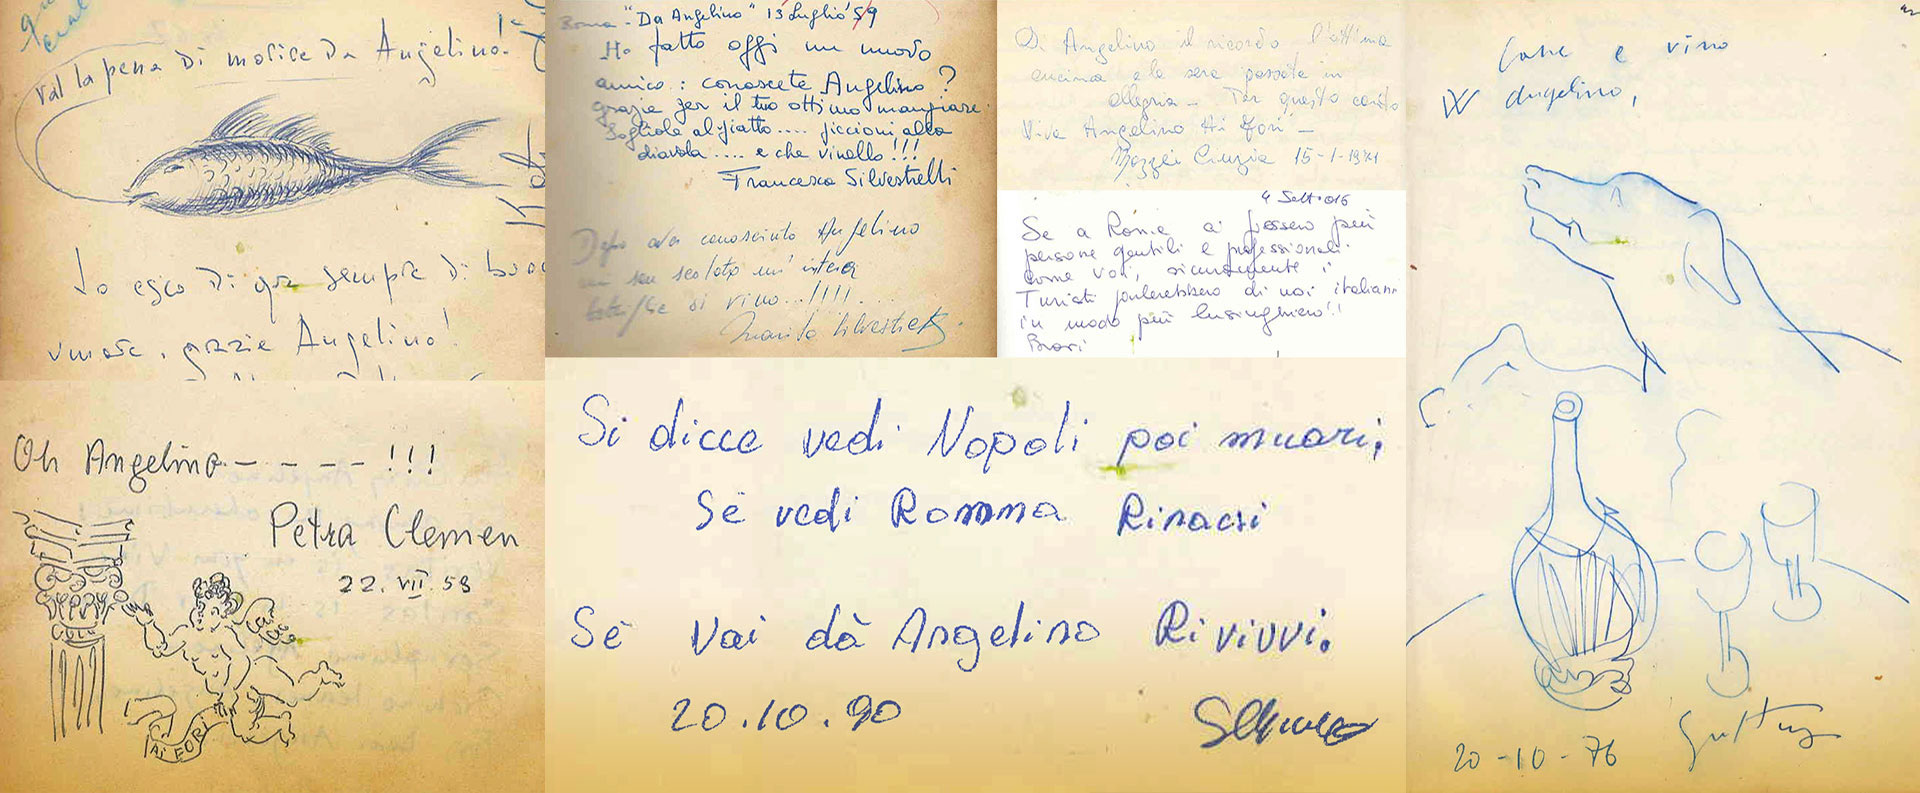 val la pena di morire da Angelino!
Io esco di qua sempre di buon
umore, grazie Angelino!
Oh Angelino - - - - !!!
Petra Clemen
22. VII. 58
AI FORI
Roma - "Da Angelino" 13 Luglio '59
Ho fatto oggi un nuovo
amico: conoscete Angelino?
grazie per il tuo ottimo mangiare.
Sogliola al piatto.... piccioni alla
diavola.... e che vinello!!!
Francesca Silvestrelli
Dopo aver conosciuto Angelino
mi son scolato un'intera
bottiglia di vino...!!!!...
Di Angelino il ricordo l'ottima
cucina e le sere passate in
allegria - Per questo canto
Viva Angelino Ai Fori" -
Mazzei Cinzia 15-1-1971
4 Sett. 016
Se a Roma ci fossero più
persone gentili e professionali
come voi, sicuramente i
Turisti parlerebbero di noi italiani
in modo più lusinghiero!!
Si dicce vedi Nopoli poi muori;
Sè vedi Romma Rinacsi
Sè Vai dà Angelino Rivivvi.
20.10.90
Cane e vino
W Angelino,
20-10-76
Guttuso